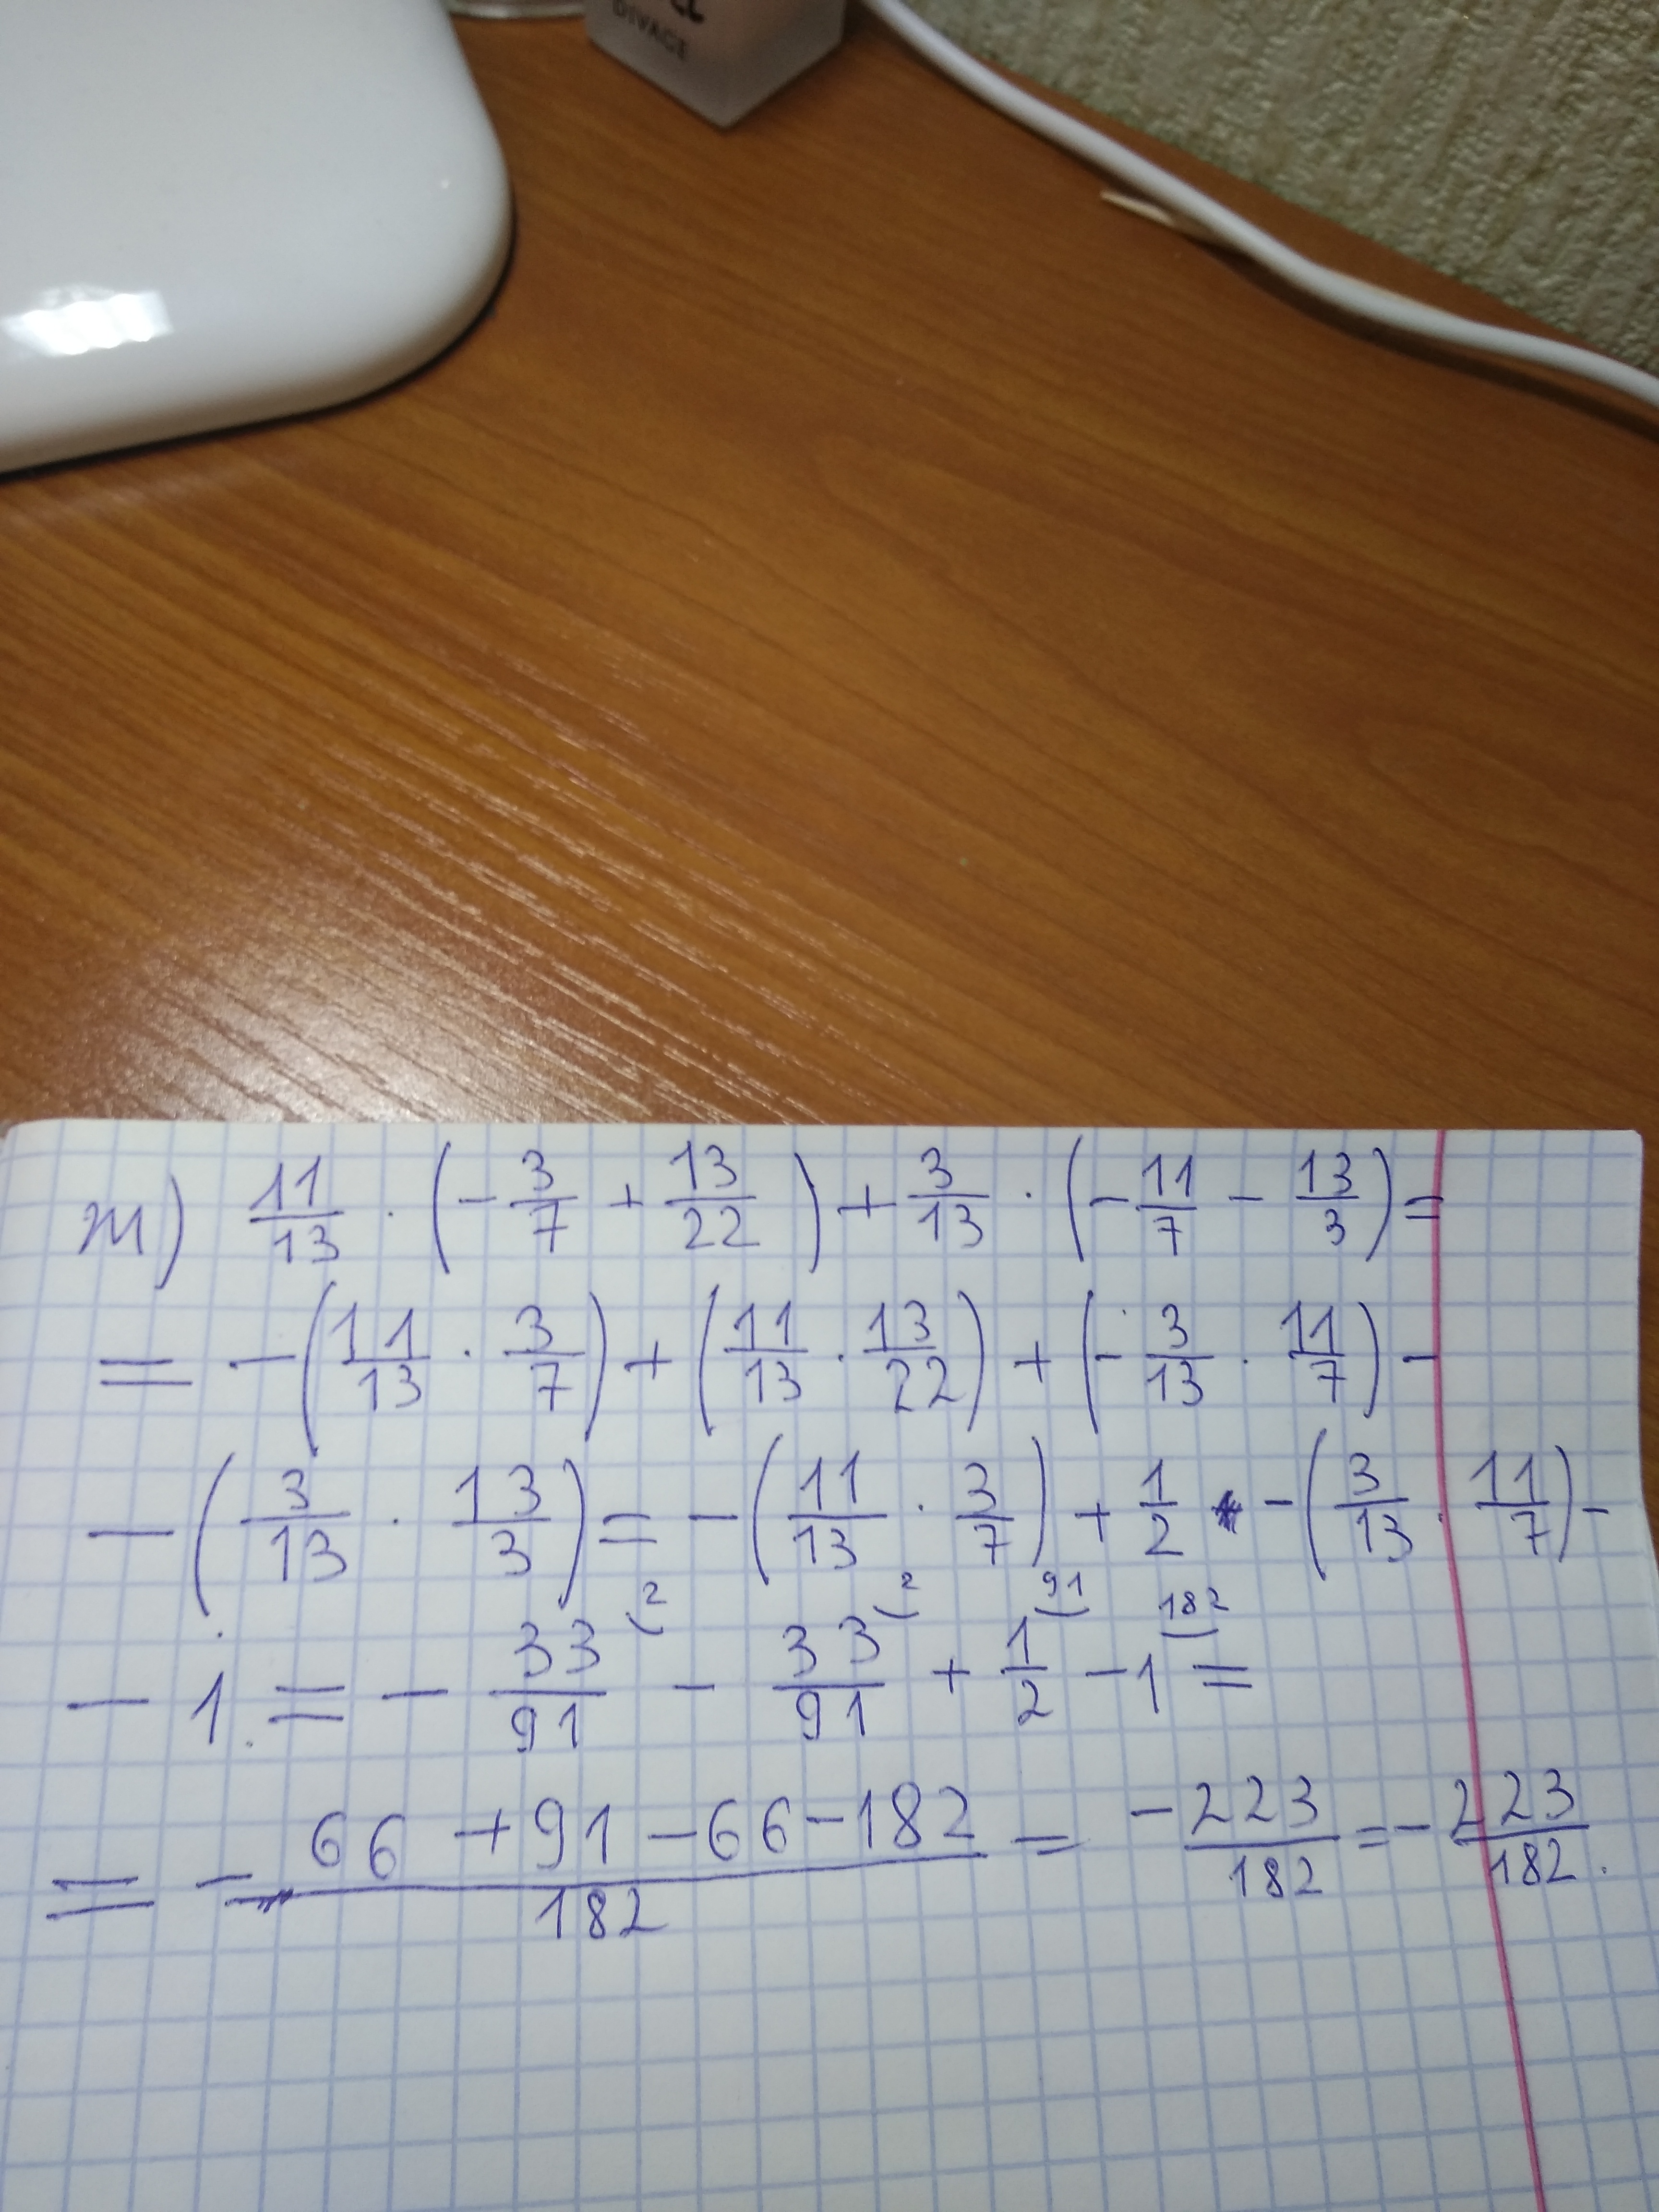 DIVAGE
т) 11/13 · (- 3/7 + 13/22) + 3/13 · (- 11/7 - 13/3) =
= - (11/13 · 3/7) + (11/13 · 13/22) + (- 3/13 · 11/7) -
- (3/13 · 13/3) = - (11/13 · 3/7) + 1/2 - (3/13 · 11/7) -
- 1 = - 33/91 (2 - 33/91 (2 + 1/2 (91 - 1 (182 =
= - 66 + 91 - 66 - 182 / 182 = -223/182 = - 223/182.